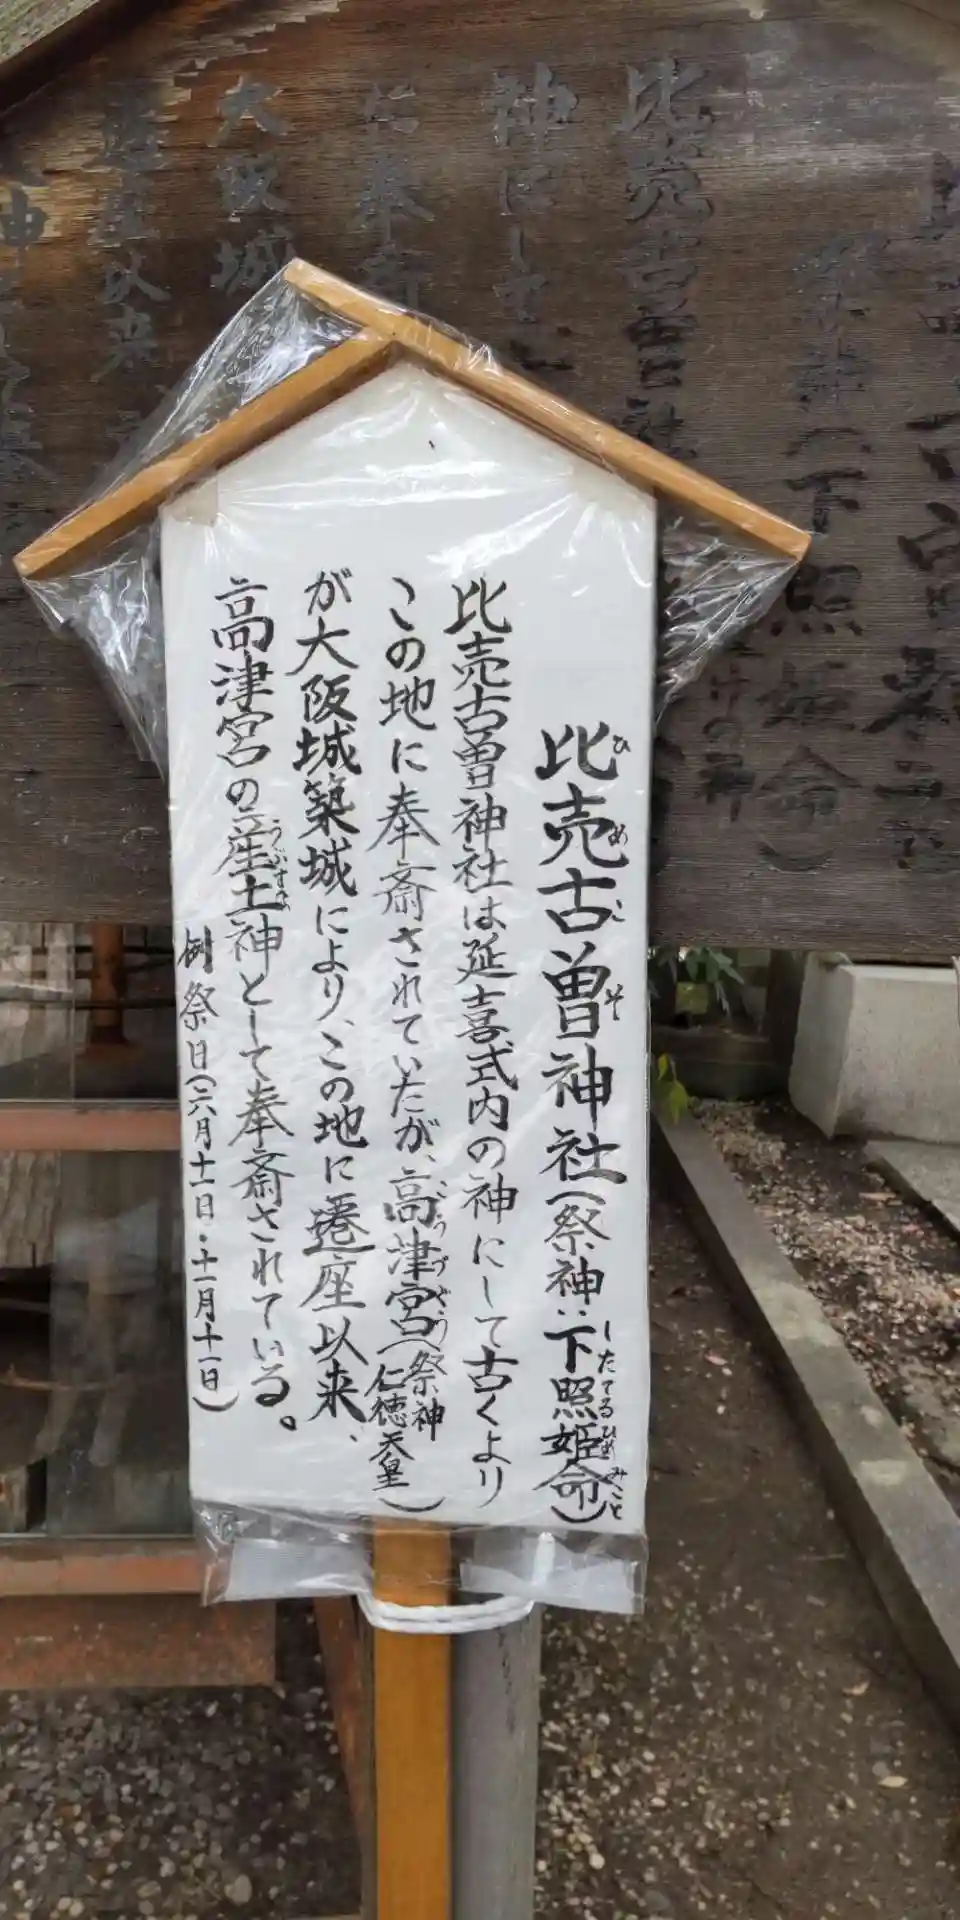 比売古曽神社(祭神:下照姫命)
ひめこそ したてるひめみこと
比売古曽神社は延喜式内の神にして古くより
この地に奉斎されていたが、高津宮(祭神仁徳天皇)
こうづぐう
が大阪城築城により、この地に遷座以来、
高津宮の産土神として奉斎されている。
うぶすな
例祭日(六月十一日・十一月十一日)
下照姫命)
比売古曽社
神にし
に奉斎
大阪城
遷座以来
神